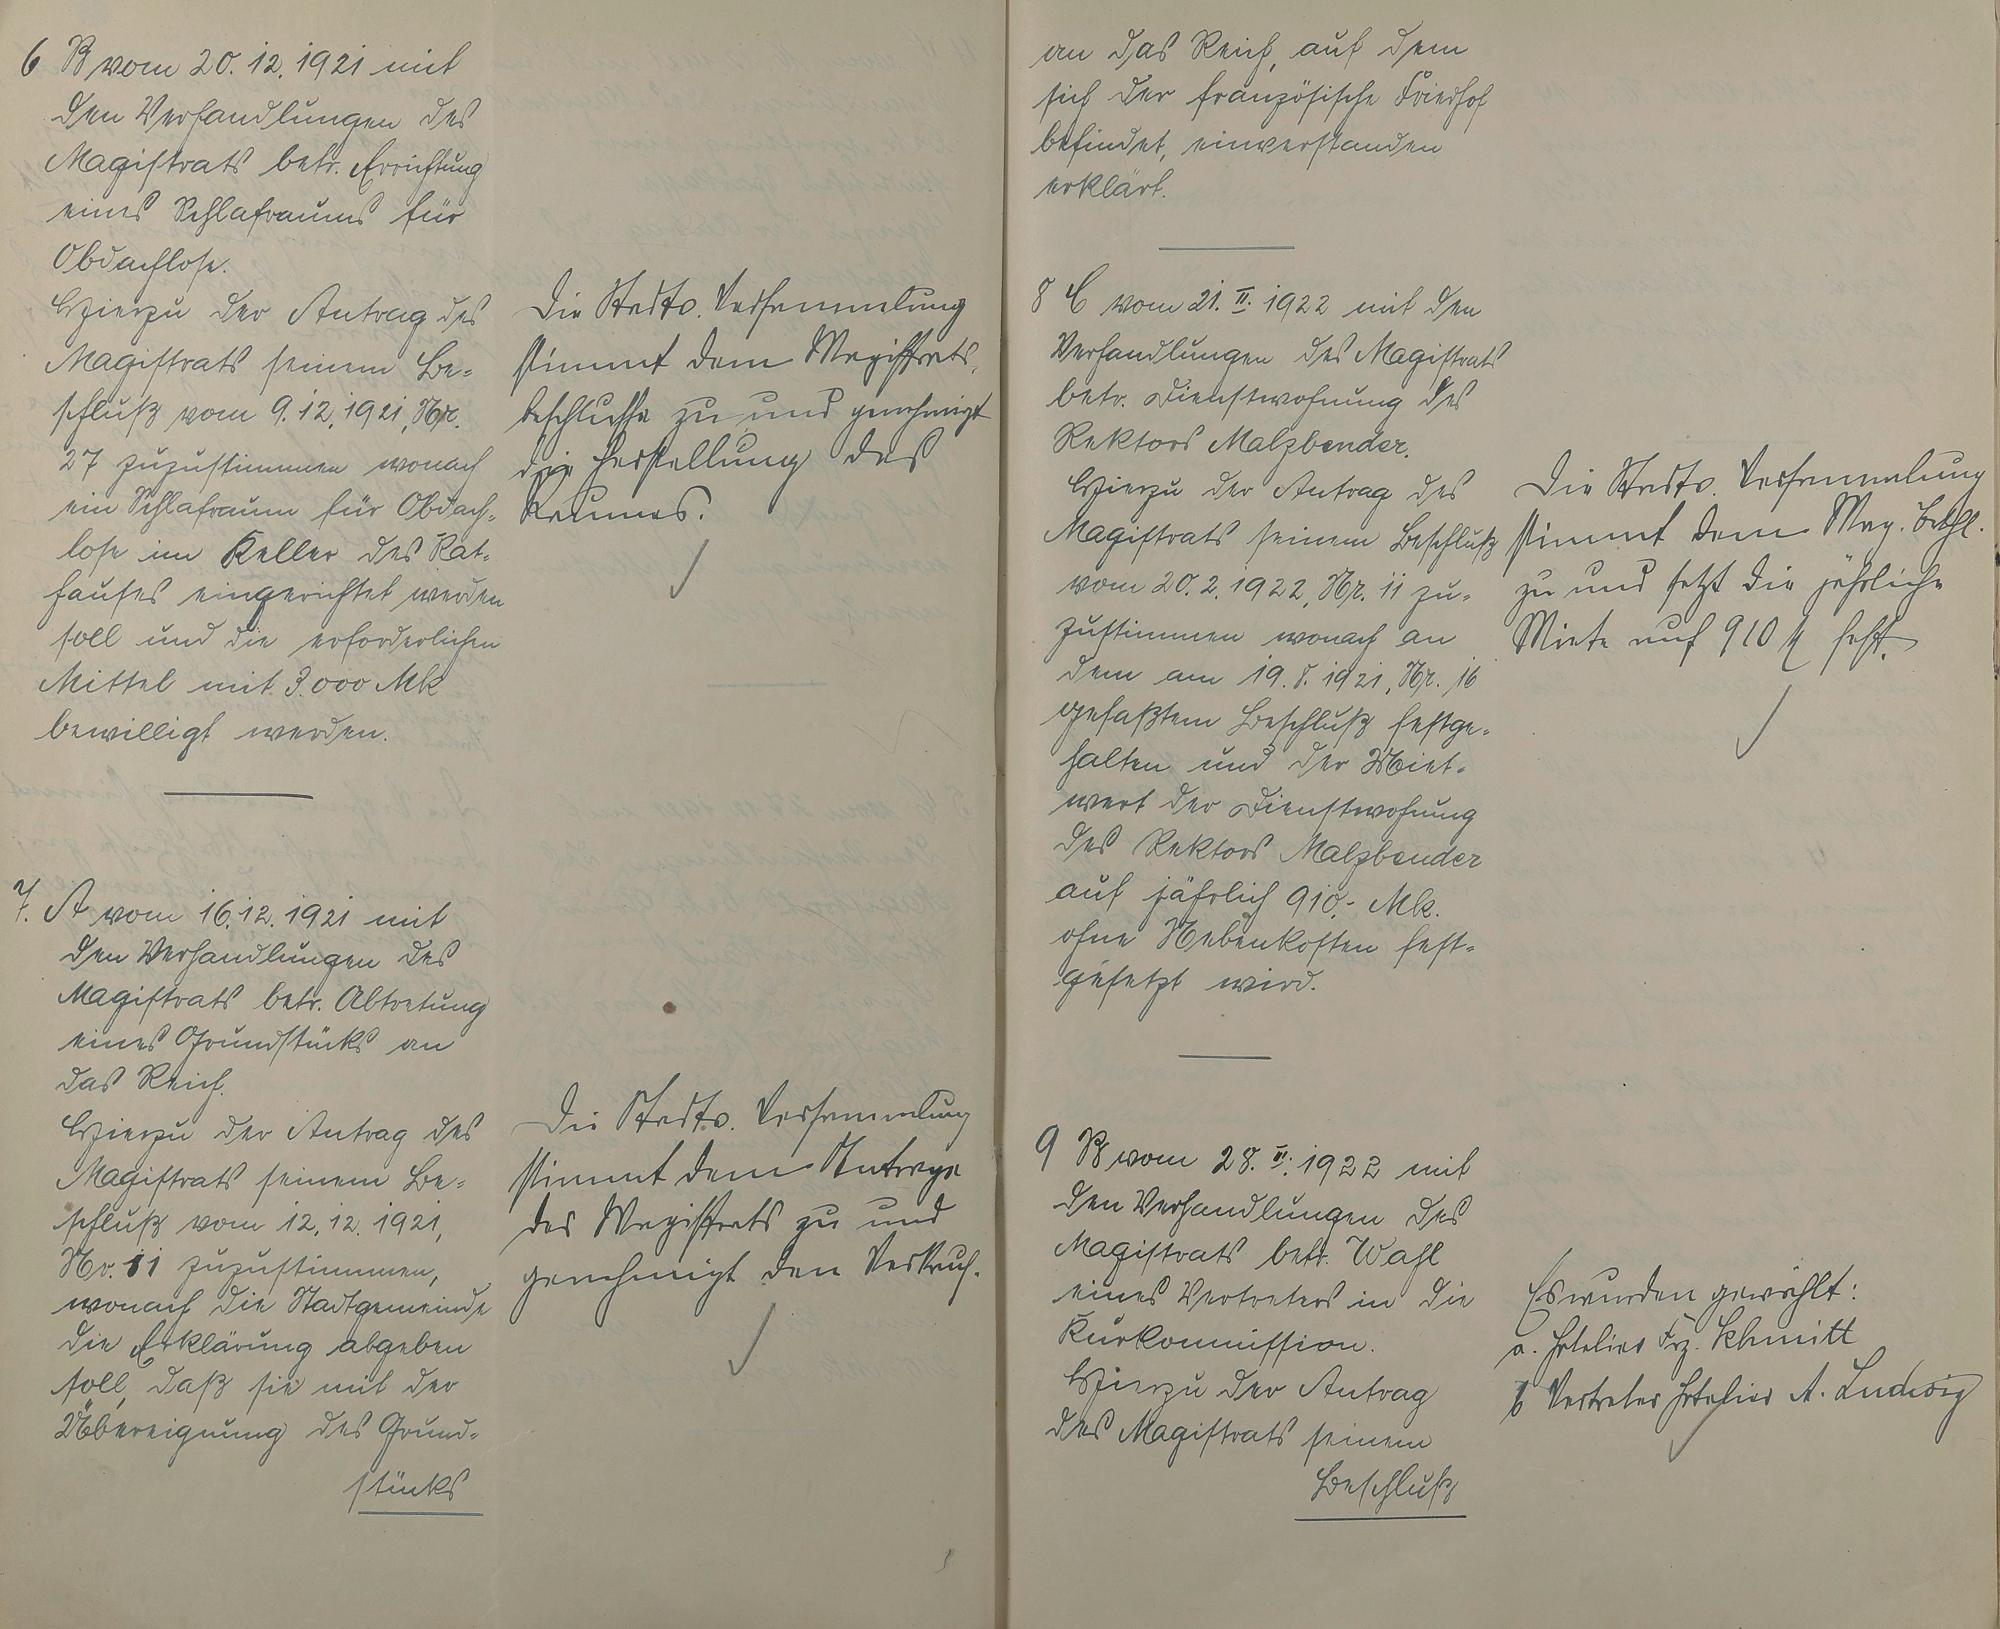 6 B vom 20. 12. 1921 mit
den Verhandlungen des
Magistrats betr. Errichtung
eines Schlafraums für
Obdachlose.
Hierzu der Antrag des
Magistrats seinem Be-
schluß vom 9. 12. 1921, Nr.
27 zuzustimmen wonach
ein Schlafraum für Obdach-
lose im Keller des Rat-
hauses eingerichtet werden
soll und die erforderlichen
Mittel mit 3.000 Mk
bewilligt werden.
Die Stadtv. Versammlung
stimmt dem Magistrats-
beschlusse zu und genehmigt
die Herstellung des
Raumes.
7. A vom 16. 12. 1921 mit
den Verhandlungen des
Magistrats betr. Abtretung
eines Grundstücks an
das Reich.
Hierzu der Antrag des
Magistrats seinem Be-
schluß vom 12. 12. 1921,
Nr. 11 zuzustimmen,
wonach die Stadtgemeinde
die Erklärung abgeben
soll, daß sie mit der
Übereignung des Grund-
stücks
Die Stadtv. Versammlung
stimmt dem Antrage
des Magistrats zu und
genehmigt den Verkauf.
an das Reich, auf dem
sich der französische Friedhof
befindet, einverstanden
erklärt.
8 C vom 21. II. 1922 mit den
Verhandlungen des Magistrats
betr. Dienstwohnung des
Rektors Malzbender.
Hierzu der Antrag des
Magistrats seinem Beschluß
vom 20. 2. 1922, Nr. 11 zu-
zustimmen wonach an
dem am 19. 8. 1921, Nr. 16
gefaßtem Beschluß festge-
halten und der Miet-
wert der Dienstwohnung
des Rektors Malzbender
auf jährlich 910,- Mk.
ohne Nebenkosten fest-
gesetzt wird.
Die Stadtv. Versammlung
stimmt dem Mag. Beschl.
zu und setzt die jährliche
Miete auf 910 M fest.
9 B vom 28. II. 1922 mit
den Verhandlungen des
Magistrats betr. Wahl
eines Vertreters in die
Kurkommission.
Hierzu der Antrag
des Magistrats seinem
Beschluß
Es wurden gewählt:
a. Hotelier Frz. Schmitt
b Vertreter Hotelier A. Ludwig